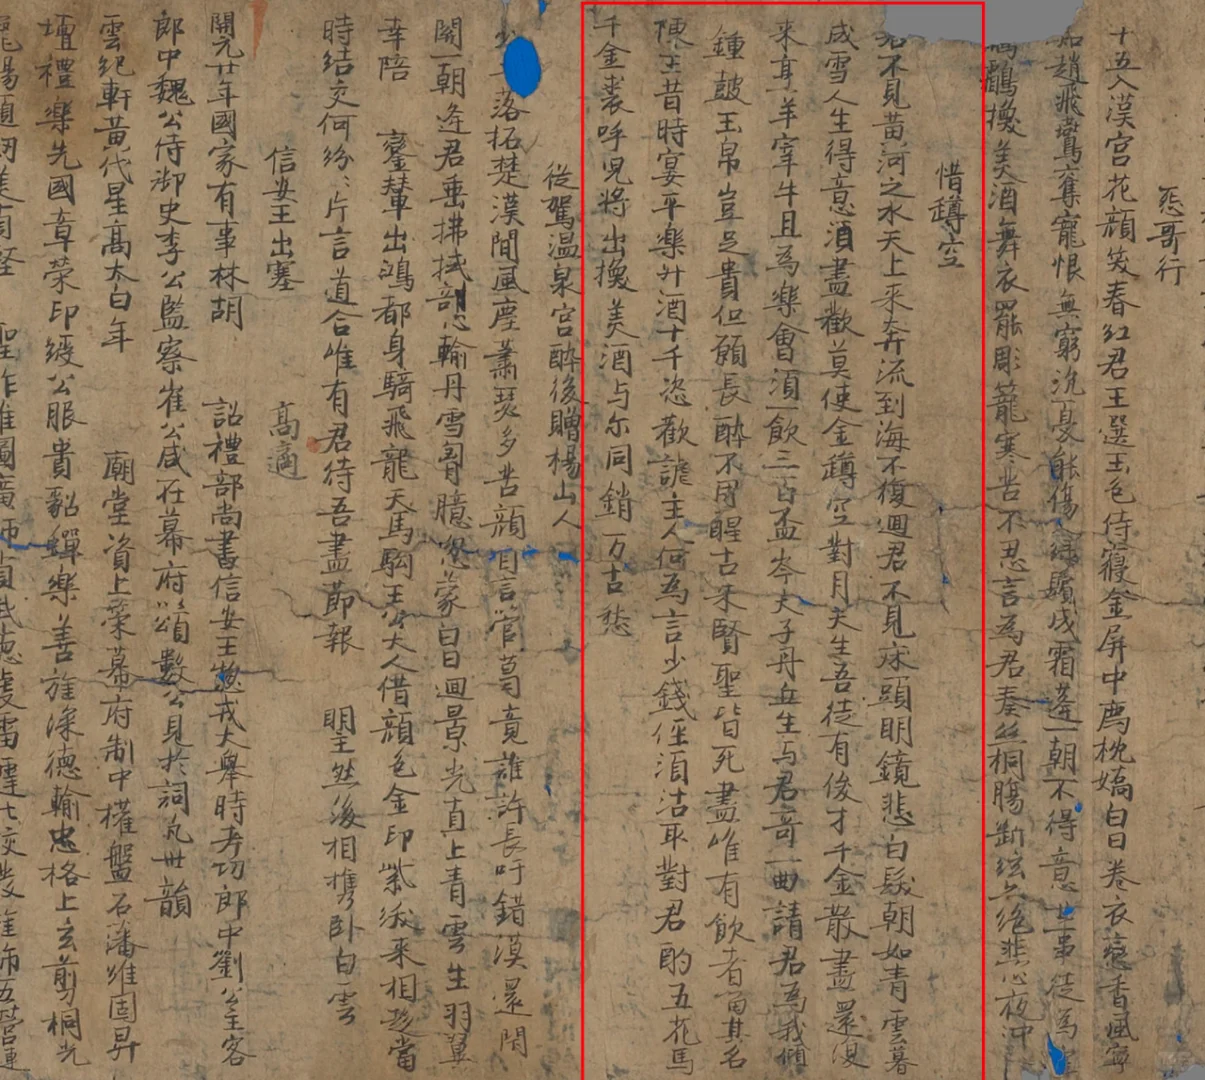 怨哥行
十五入漢宮花顏笑春紅君王選玉色侍寢金屏中薦枕嬌白日卷衣戀香風寧
趙飛鷰奪寵恨無窮沉憂能傷緑鬢成霜蓬一朝不得意世事徒為
鷫鸘換美酒舞衣罷彫籠寒苦不忍言為君奏絲桐腸斷絃亦絶悲心夜沖
惜罇空
君不見黃河之水天上来奔流到海不復迴君不見床頭明鏡悲白髮朝如青雲暮
成雪人生得意酒盡歡莫使金罇空對月天生吾徒有俊才千金散盡還復
来烹羊宰牛且為樂會湏一飲三百盃岑夫子丹丘生与君哥一曲請君為我傾
鍾皷玉帛豈足貴但願長醉不用醒古来賢聖皆死盡唯有飲者留其名
陳王昔時宴平樂斗酒十千恣歡謔主人何為言少錢俓湏沽取對君酌五花馬
千金裘呼兒將出換美酒与尔同銷万古愁
從駕温泉宮醉後贈楊山人
落拓楚漢間風塵蕭瑟多苦顏自言管葛竟誰許長吁錯漠還閇
關一朝逢君垂拂拭剖心輸丹雪胷臆忽蒙白日迴景光直上青雲生羽翼
幸陪 鑾輦出鴻都身騎飛龍天馬駒王公大人借顏色金印紫綬来相趍當
時結交何紛ミ片言道合唯有君待吾盡莭報 明主然後相攜卧白雲
信安王出塞 高適
開元廿年國家有事林胡 詔禮部尚書信安王揔戎大舉時考功郎中劉公主客
郎中魏公侍御史李公監察崔公咸在幕府頌數公見於詞凡卅韻
雲紀軒黃代星高太白年 廟堂資上筞幕府制中權盤石藩維固昇
壇禮樂先國章榮印綬公服貴貂蟬樂善旌深德輸忠格上玄剪桐光